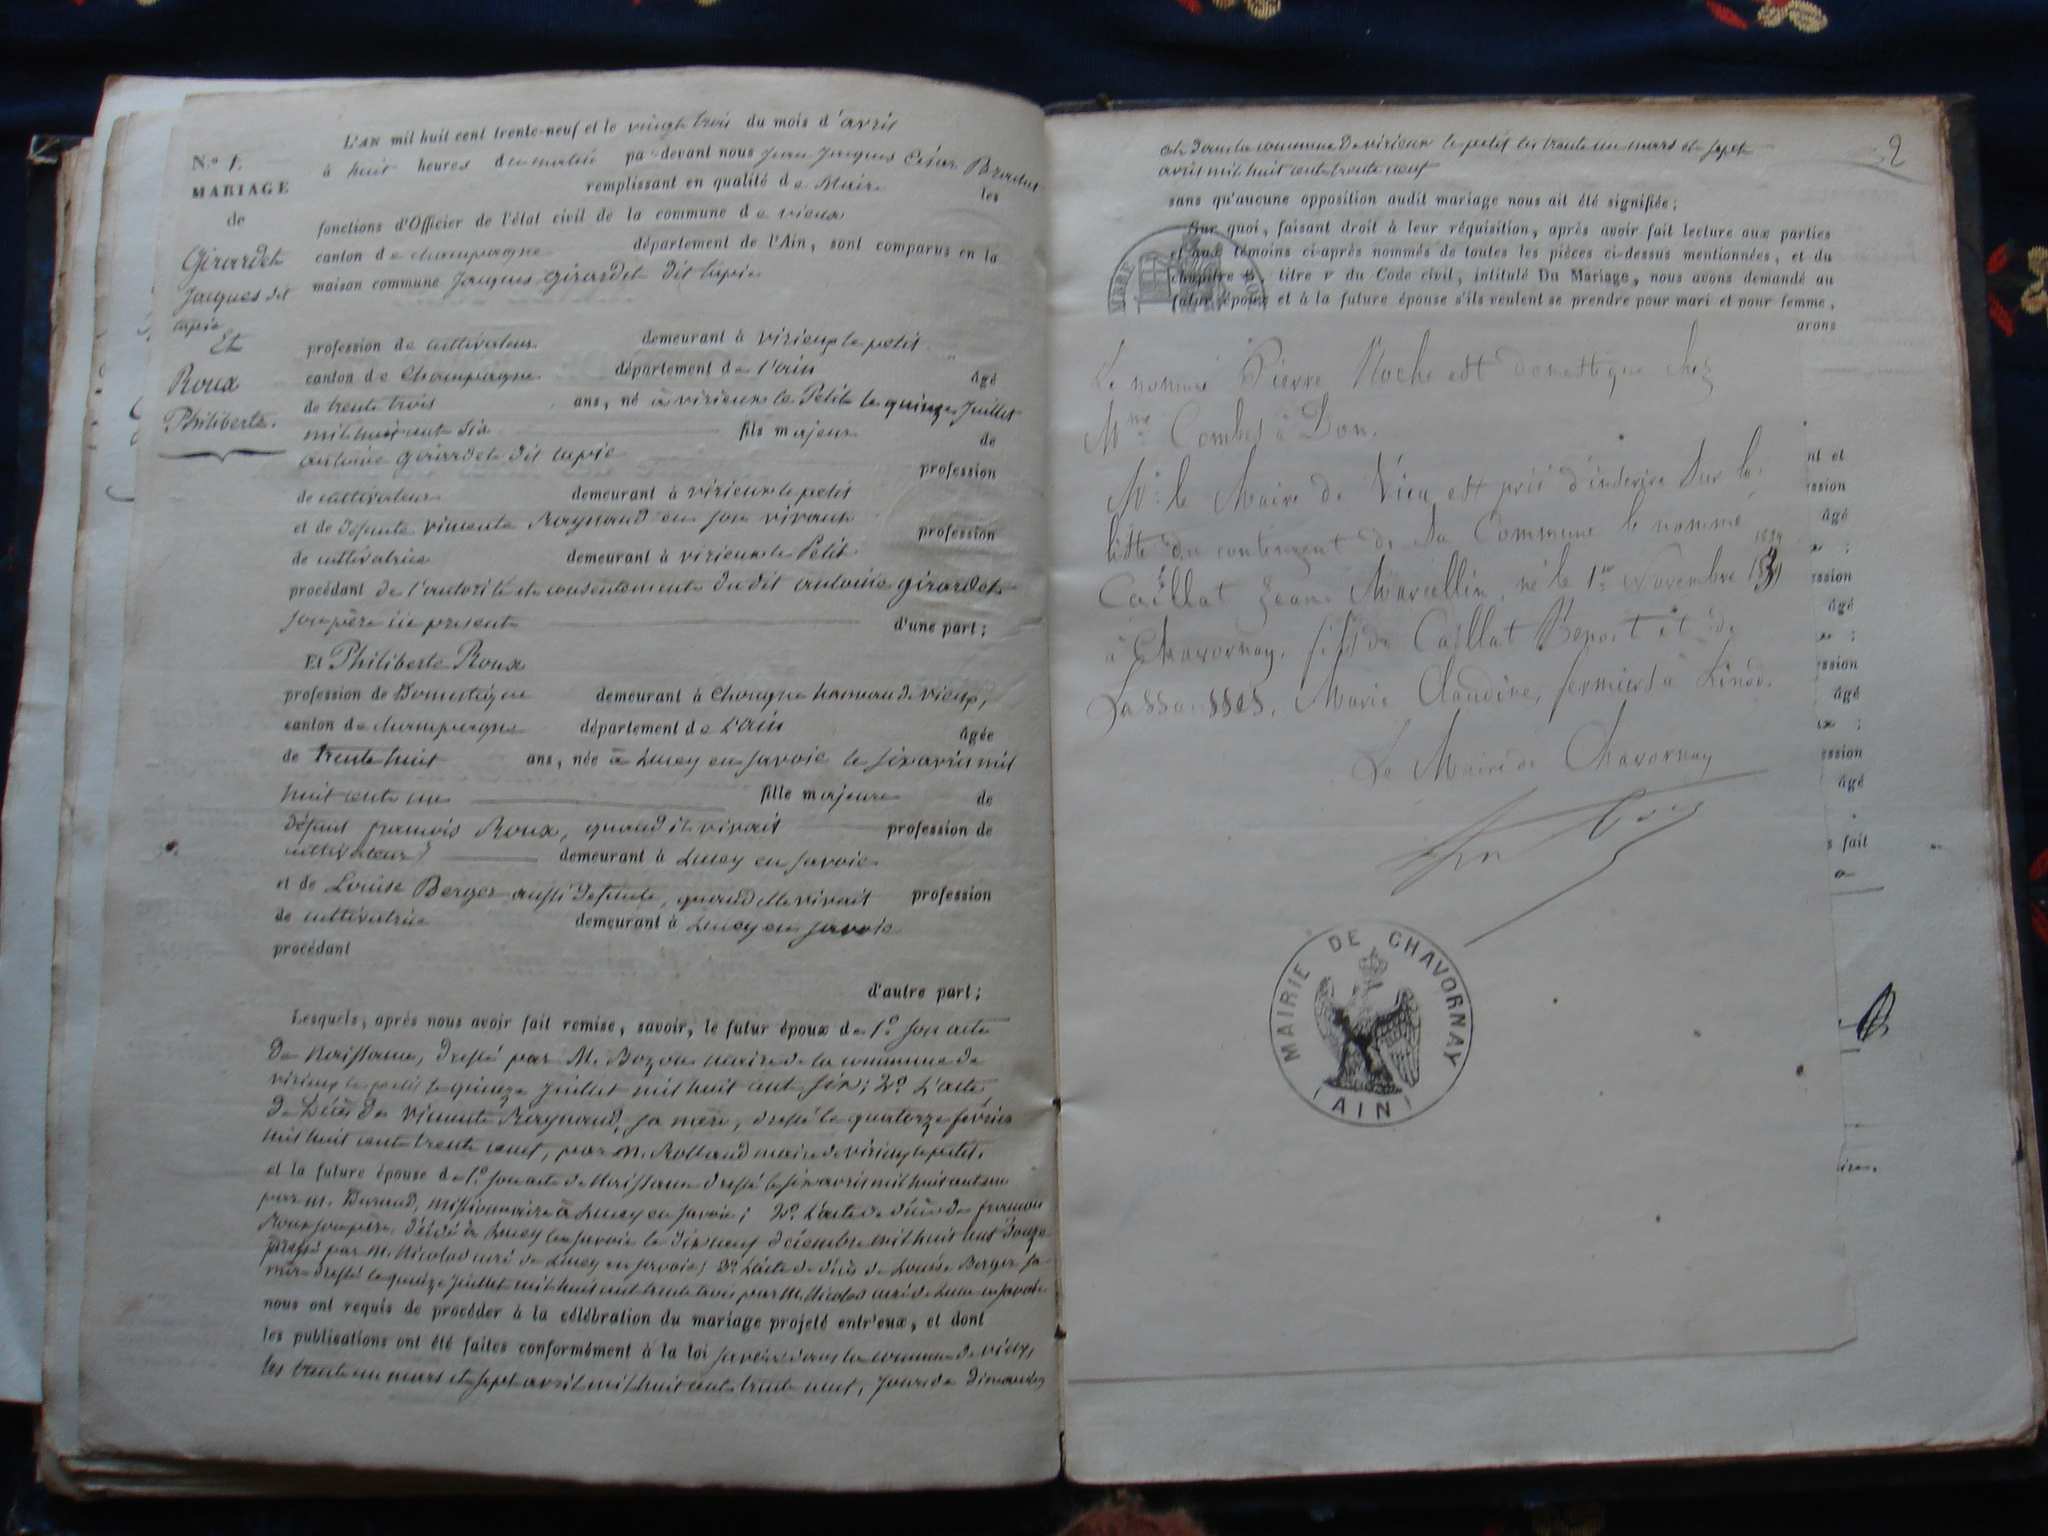 N.º 1.
MARIAGE
de
Girardet
Jacques dit
tapie
Et
Roux
Philiberte.
L'AN mil huit cent trente-neuf et le vingt trois du mois d'avril
à huit heures du matin par-devant nous Jean Jacques César
remplissant en qualité de Maire les
fonctions d'Officier de l'état civil de la commune de vieux
canton de champagne département de l'Ain, sont comparus en la
maison commune Jacques Girardet dit tapie
profession de cultivateur demeurant à virieux le petit
canton de Champagne département de l'ain âgé
de trente trois ans, né à virieux le Petit le quinze Juillet
mil huit cent six fils majeur de
antoine girardet dit tapie profession
de cultivateur demeurant à virieux le petit
et de défunte vincente Raynaud en son vivant profession
de cultivatrice demeurant à virieux le Petit
procédant de l'autorité et consentement du dit antoine girardet
son père ici présent d'une part;
Et Philiberte Roux
profession de Domestique demeurant à Chongne hameau de vieux,
canton de champagne département de L'ain âgée
de trente huit ans, née à Lucey en savoie le six avril mil
huit cent un fille majeure de
défunt francois Roux, quand il vivait profession de
cultivateur demeurant à Lucey en savoie
et de Louise Berger aussi défunte, quand elle vivait profession
de cultivatrice demeurant à Lucey en savoie
procédant
d'autre part;
Lesquels, après nous avoir fait remise, savoir, le futur époux de 1.º son acte
de naissance, dressé par M. Bozon maire de la commune de
virieux le petit le quinze Juillet mil huit cent six; 2.º L'acte
de décès de vincente Raynaud, sa mère, dressé le quatorze février
mil huit cent trente neuf, par M. Rolland maire de virieux le petit.
et la future épouse de 1.º son acte de naissance dressé le six avril mil huit cent un
par M. Durand, missionnaire à Lucey en savoie; 2.º L'acte de décès de francois
Roux son père, décédé à Lucey en savoie le dix neuf décembre mil huit cent douze
dressé par M. Nicolas curé de Lucey en savoie; 3.º L'acte de décès de Louise Berger sa
mère dressé le quinze Juillet mil huit cent trente trois par M. Nicolas curé de Lucey en savoie
nous ont requis de procéder à la célébration du mariage projeté entr'eux, et dont
les publications ont été faites conformément à la loi savoir dans la commune de vieux,
les trente un mars et sept avril mil huit cent trente neuf, jours de dimanches
2
et dans la commune de virieux le petit les trente un mars et sept
avril mil huit cent trente neuf
sans qu'aucune opposition audit mariage nous ait été signifiée;
Sur quoi, faisant droit à leur réquisition, après avoir fait lecture aux parties
et aux témoins ci-après nommés de toutes les pièces ci-dessus mentionnées, et du
chapitre 6, titre v du Code civil, intitulé Du Mariage, nous avons demandé au
futur époux et à la future épouse s'ils veulent se prendre pour mari et pour femme,
arons
Le nommé Pierre Roche est domestique chez
Mme Combet à Don.
Mr. le Maire de Vieu est prié d'inscrire sur la
liste du contingent de sa Commune le nommé
Caillat Jean Marcellin, né le 1er Novembre 1831
1834
à Chavornay, fils de Caillat Benoit et de
Marie Claudine, fermiers à Linod.
Le Maire de Chavornay
MAIRIE DE CHAVORNAY
(AIN)
nt et
ssion
âgé
ssion
âgé
ssion
âgé
ession
âgé
s fait